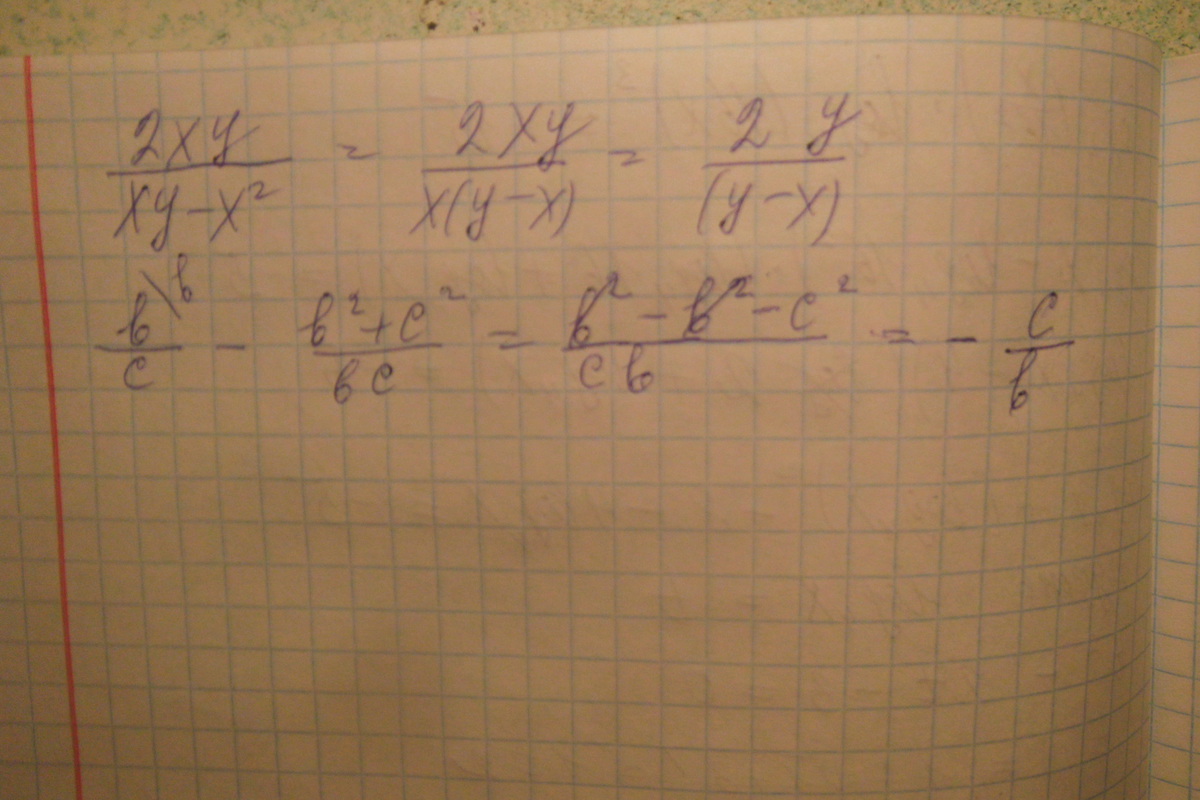 2xy/(xy-x²) = 2xy/(x(y-x)) = 2 y/(y-x)
b\b/c - (b²+c²)/(bc) = (b²-b²-c²)/(cb) = -c/b